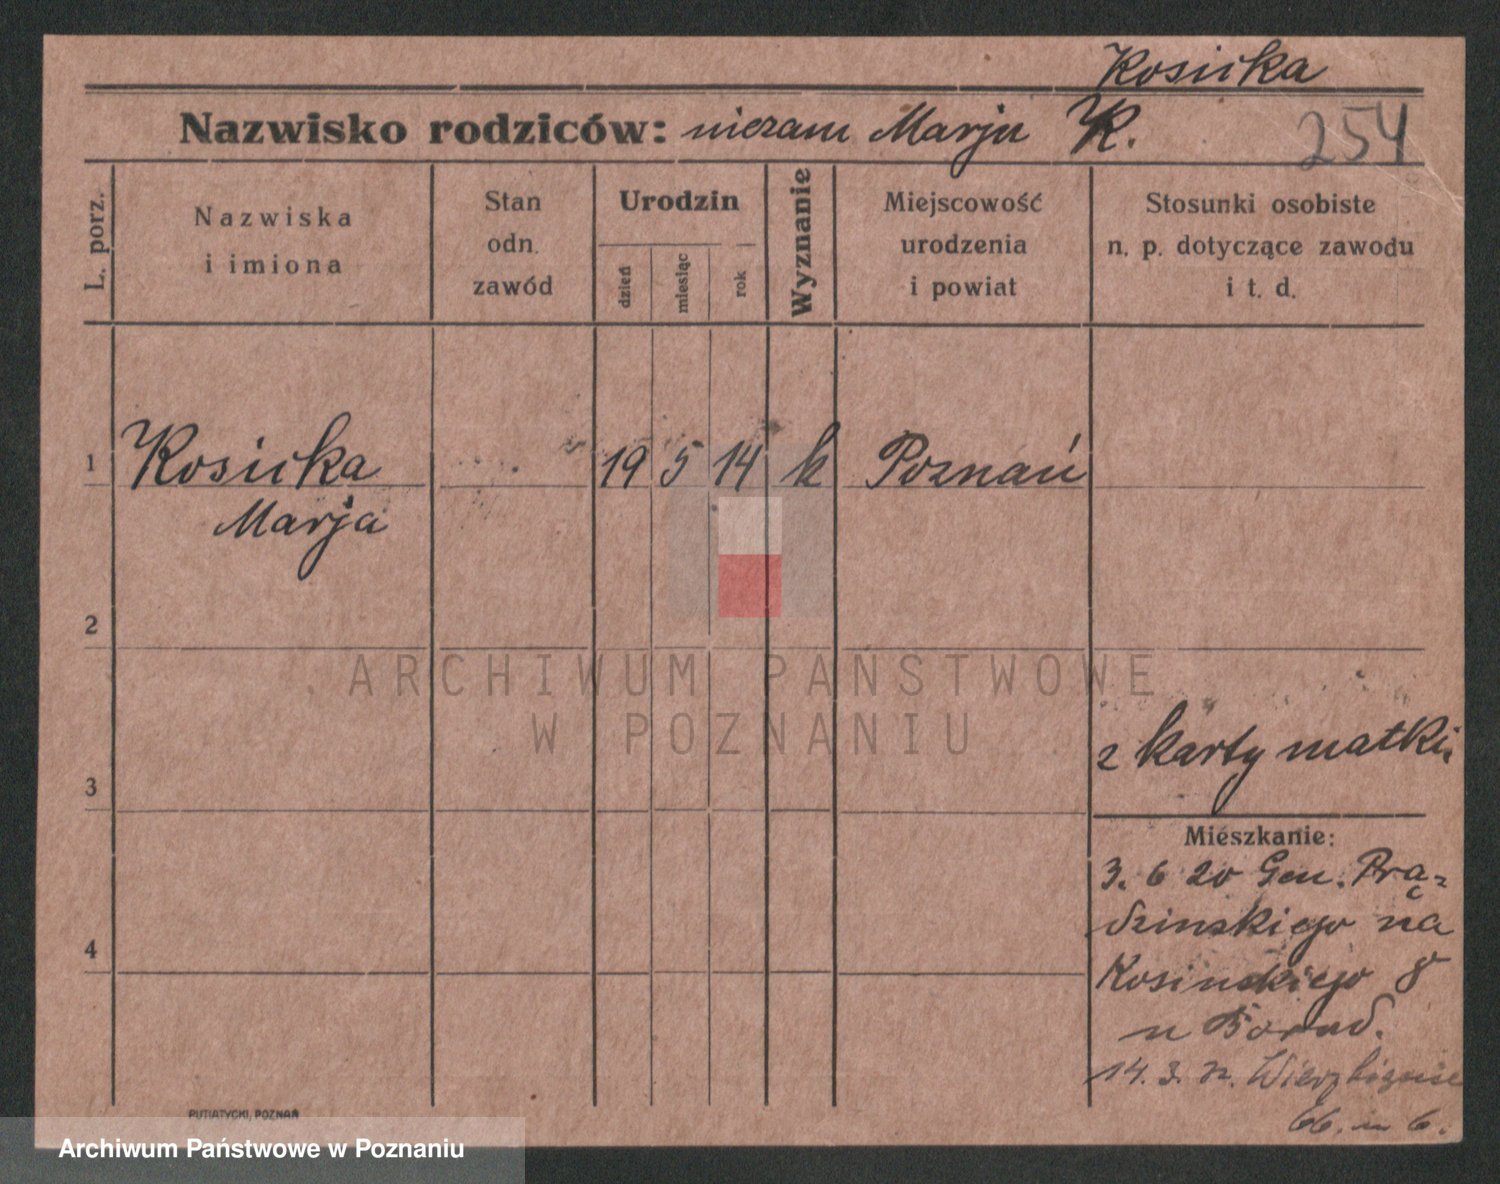 Kosicka
Nazwisko rodziców: niezam Marja K. 254
L. porz.
Nazwiska
i imiona
Stan
odn.
zawód
Urodzin
dzień
miesiąc
rok
Wyznanie
Miejscowość
urodzenia
i powiat
Stosunki osobiste
n. p. dotyczące zawodu
i t. d.
1 Kosicka 19 5 14 k Poznań
Marja
2
ARCHIWUM PAŃSTWOWE
W POZNANIU
z karty matki
3
Mieszkanie:
3. 6 20 Gen. Prą-
dzinskiego na
4
Kosinskiego 8
u
14. 3.
66. m 6.
PUTIATYCKI, POZNAŃ
Archiwum Państwowe w Poznaniu